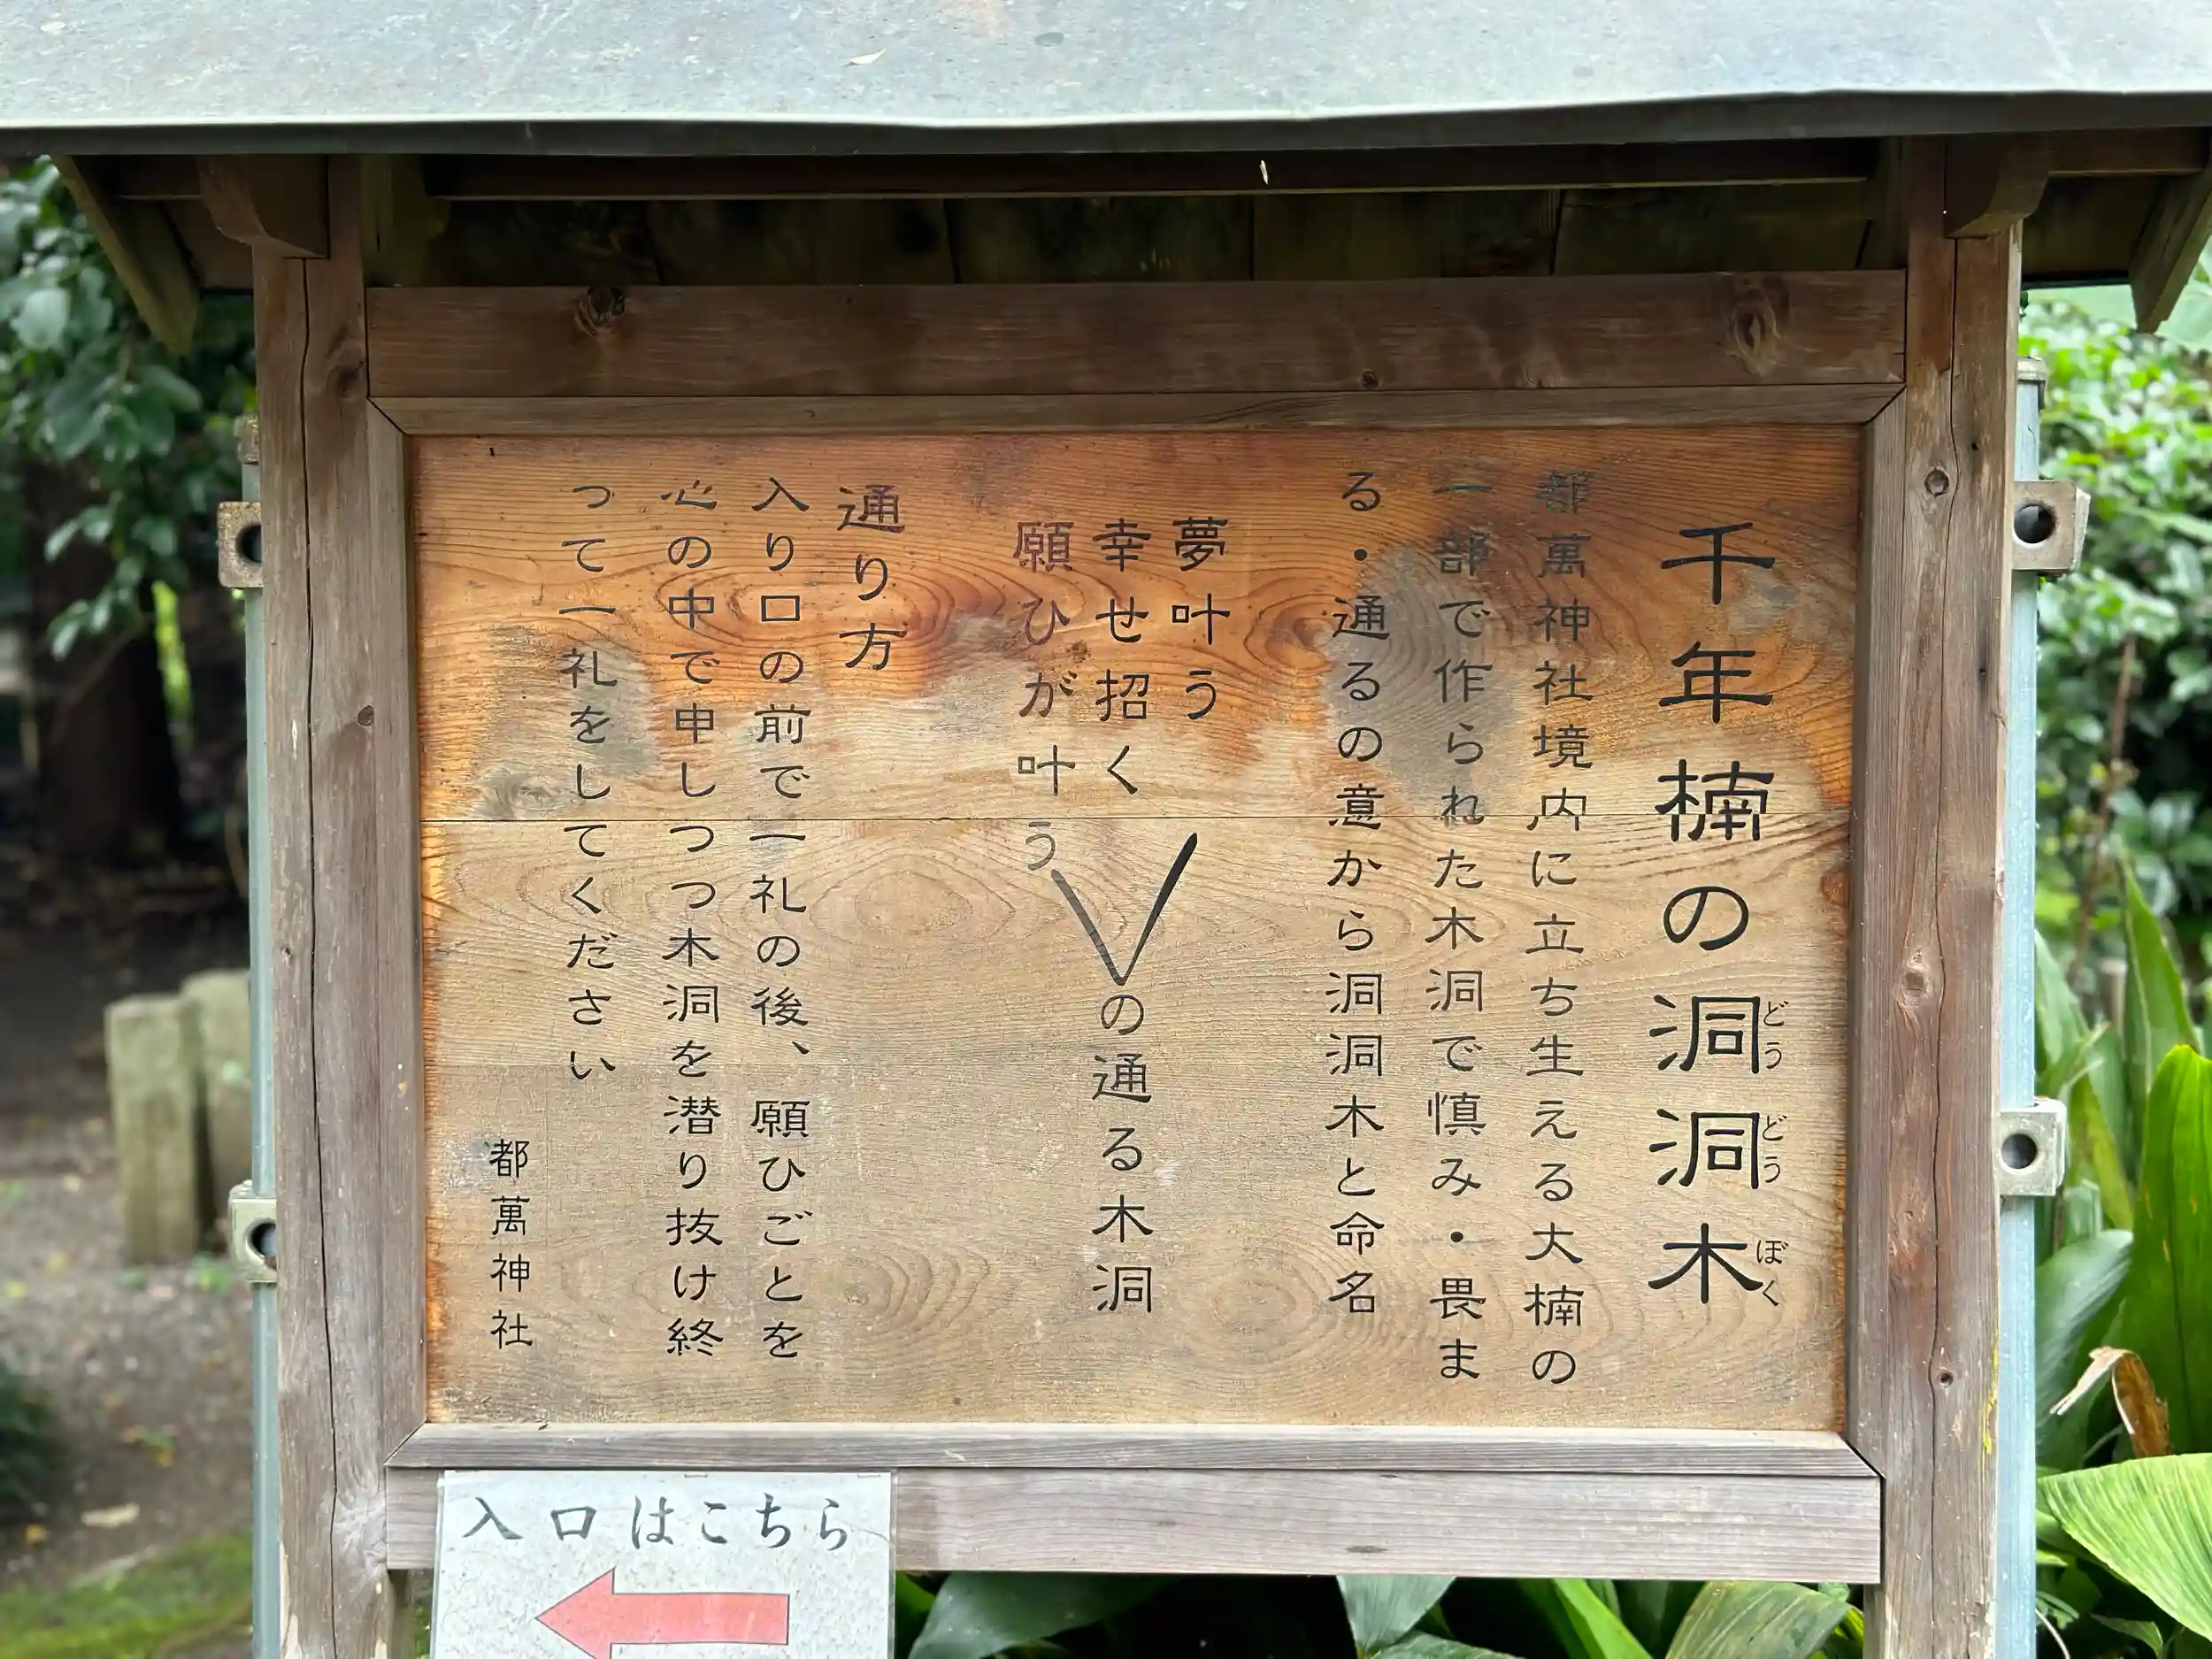 千年楠の洞洞木
どうどうぼく
都萬神社境内に立ち生える大楠の
一部で作られた木洞で慎み・畏ま
る・通るの意から洞洞木と命名
夢叶う
幸せ招く
願ひが叶う
の通る木洞
通り方
入り口の前で一礼の後、願ひごとを
心の中で申しつつ木洞を潜り抜け終
って一礼をしてください
都萬神社
入口はこちら